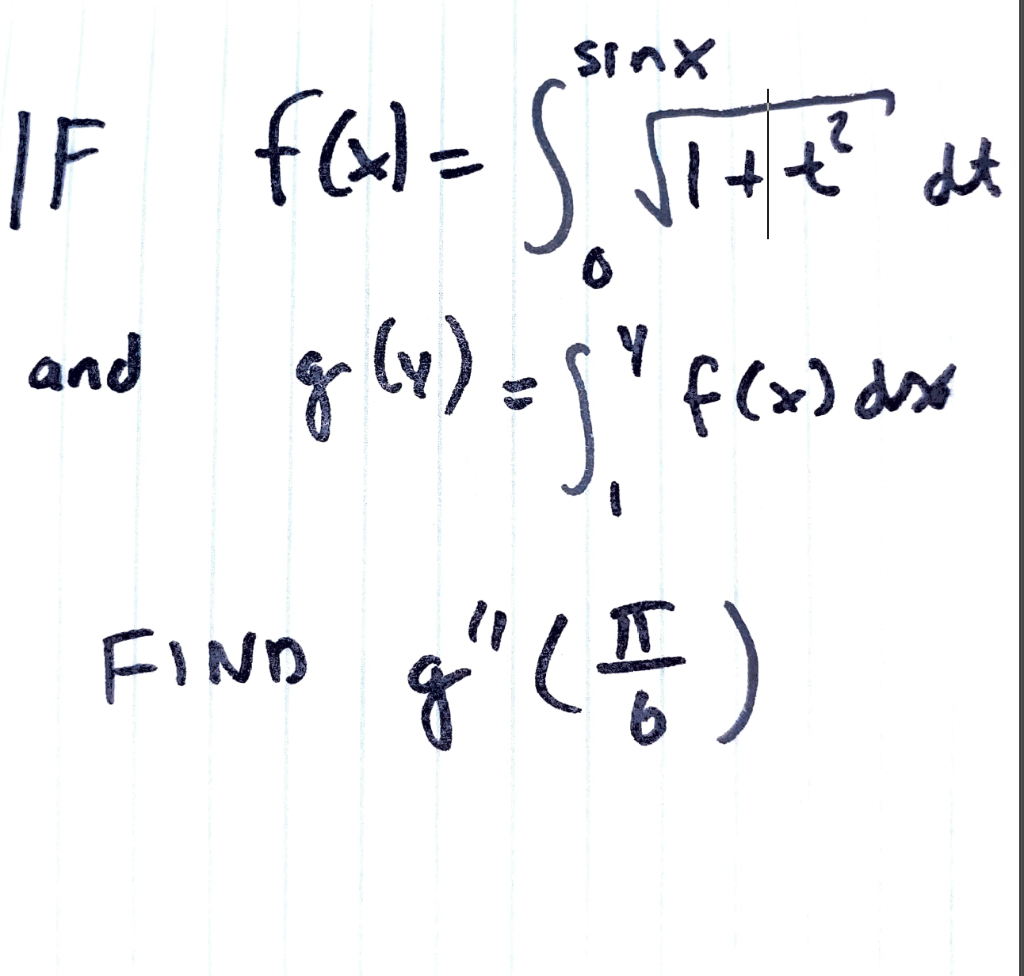 IF f(x) = ∫₀^(sinx) √(1+t²) dt
and g(y) = ∫₁^y f(x) dx
FIND g"(π/6)